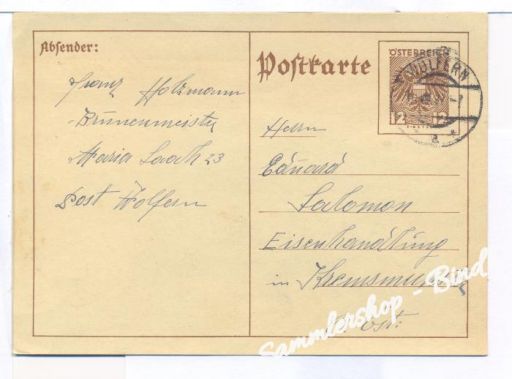 Absender:
Franz Holzmann
Brunnenmeister
Maria Laah 23
Post Wolfern
Postkarte
ÖSTERREICH
WOLFERN
12
Herrn
Eduard
Salomon
Eisenhandlung
in Kremsmünster
Sammlershop - Bindl